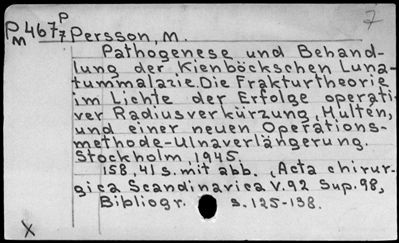 7
P
PM4677 Persson, M.
Pathogenese und Behand-
lung der Kienböckschen Luna-
tummalazie. Die Frakturtheorie
im Lichte der Erfolge operati-
ver Radiusverkürzung, Hultén,
und einer neuen Operations-
methode-Ulnaverlängerung.
Stockholm, 1945
158, 41 s. mit abb. (Acta chirur-
gica Scandinavica V.92 Sup.98,
Bibliogr. s.125-138.
X